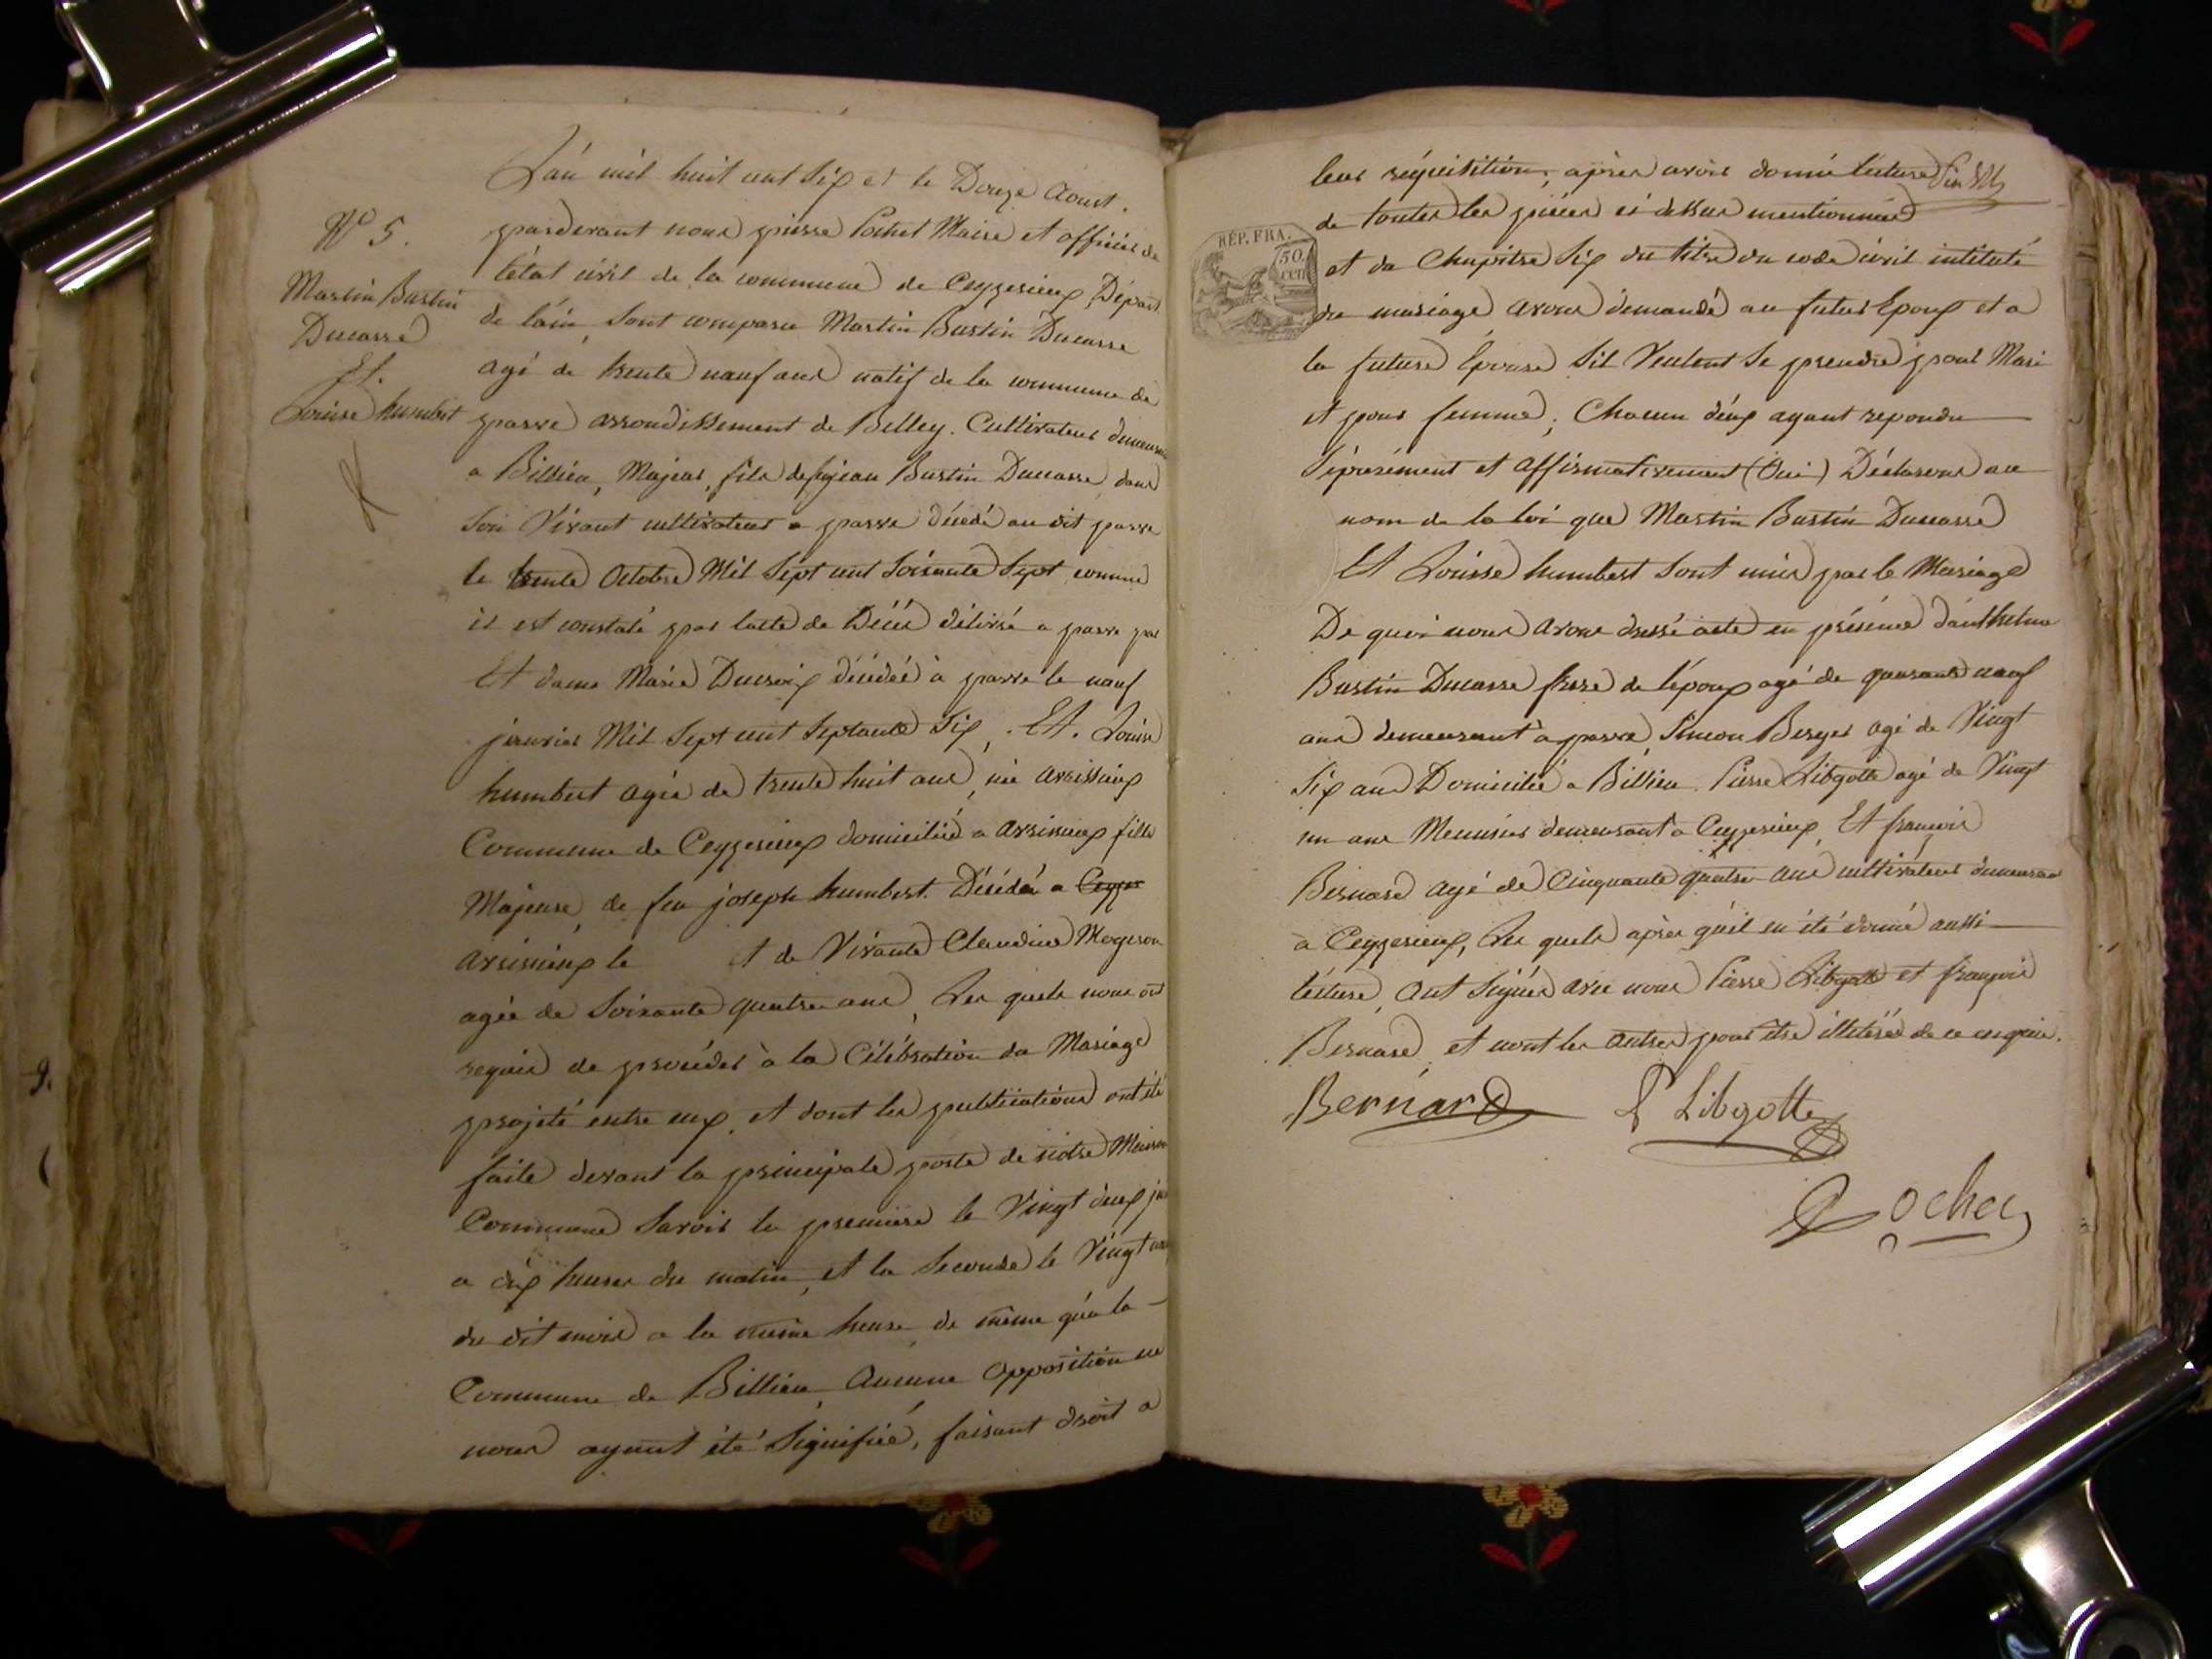 L'an mil huit cent Six et le Douze Aoust.
N° 5.
Martin Bustin
Ducarre
Et.
Louise humbert
pardevant nous pierre Pochet Maire et officier de
l'état civil de la commune de Ceyzerieux, Départ.
de l'ain, Sont comparu Martin Bustin Ducarre
agé de trente neuf ans natif de la commune de
parve arrondissement de Belley. Cultivateur demeurant
a Billieu, Majeur, fils de feu jean Bustin Ducarre, dans
Son Vivant cultivateur a parve décédé au dit parve
le trente Octobre Mil Sept cent Soixante Sept, comme
il est constaté par l'acte de Décé délivré a parve par
Et dame Marie Ducroix décédée à parve le neuf
janvier Mil Sept cent Septante Six, Et. Louise
humbert agée de trente huit ans, née
Commune de Ceyzerieux domiciliée a avrissieux fille
Majeure, de feu joseph humbert. Décédé a Ceyzer
avrissieux le et de Vivante Claudine Mogeron
agée de Soixante quatre ans, Les quels nous ont
requis de procéder à la Célébration du Mariage
projeté entre eux, et dont les publications ont été
faite devant la principale porte de notre Maison
Commune Savoir la premiere le Vingt deux
a dix heures du matin, et la Seconde le Vingt
du dit mois a la même heure, de même qu'a la
Commune de Billieu, Aucune Opposition ne
nous ayant été Signifiée, faisant droit a
leur réquisition; après avoir donné lecture
de toutes les pièces ci dessus mentionnées
RÉP. FRA.
50.
cen
et du Chapitre Six du titre du code civil intitulé
du mariage avons demandé au futur Epoux et a
la future Epouse Sil Veulent Se prendre pour Mari
et pour femme; Chacun d'eux ayant repondu
Séparément et Affirmativement (Oui) Déclarons au
nom de la loi que Martin Bustin Ducarre
Et Louisse humbert Sont unis par le Mariage
De quoi nous avons dressé acte en présence d'anthelme
Bustin Ducarre frere de l'époux agé de quarante neuf
ans demeurant à parve, Simeon Berger agé de Vingt
Six ans Domicilié a Billieu. Pierre Libgotte agé de Vingt
un ans Menusier demeurant a Ceyzerieux, Et françois
Bernard agé de Cinquante quatre ans cultivateur demeurant
à Ceyzerieux, Les quels après qu'il en été donné aussi
lecture, Ont Signés avec nous Pierre Libgotte et françois
Bernard, et nont les autres pour être illeterés de ce enquis.
Bernard
P Libgotte
Pochet